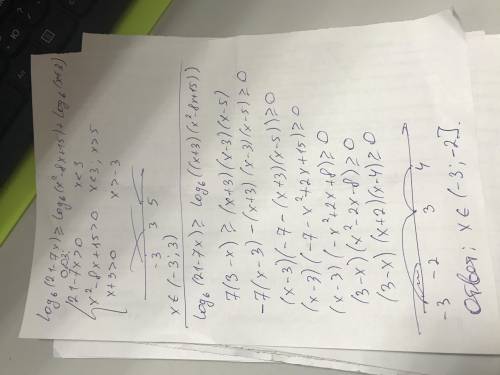 log₆(21-7x) ≥ log₆(x²-8x+15) + log₆(x+3)
21-7x>0 x<3
x²-8x+15>0 x<3, x>5
x+3>0 x>-3
-3 3 5
x∈(-3; 3)
log₆(21-7x) ≥ log₆((x+3)(x²-8x+15))
7(3-x) ≥ (x+3)(x-3)(x-5)
-7(x-3) - (x+3)(x-3)(x-5) ≥ 0
(x-3)(-7-(x+3)(x-5)) ≥ 0
(x-3)(-7-x²+2x+15) ≥ 0
(x-3)(-x²+2x+8) ≥ 0
(3-x)(x²-2x-8) ≥ 0
(3-x)(x+2)(x-4) ≥ 0
-3 -2 3 4
Ответ: x∈(-3; -2].